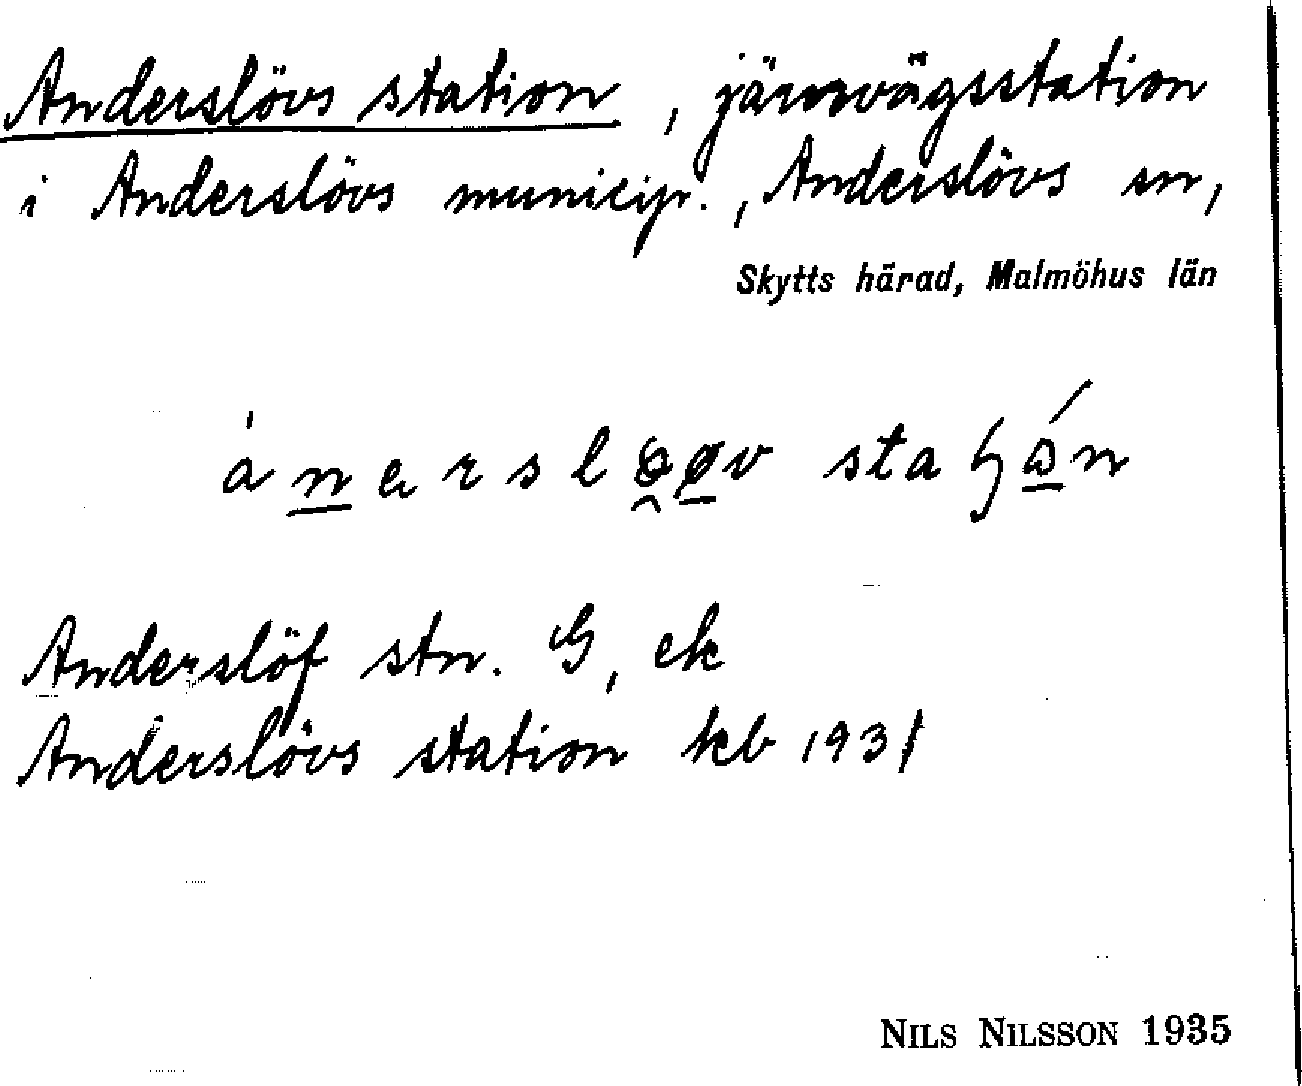 Anderslövs station, järnvägsstation
i Anderslövs municip., Anderslövs sn,
Skytts härad, Malmöhus län
Anderslöf stn. G, ek
Anderslövs station kb 1931
NILS NILSSON 1935